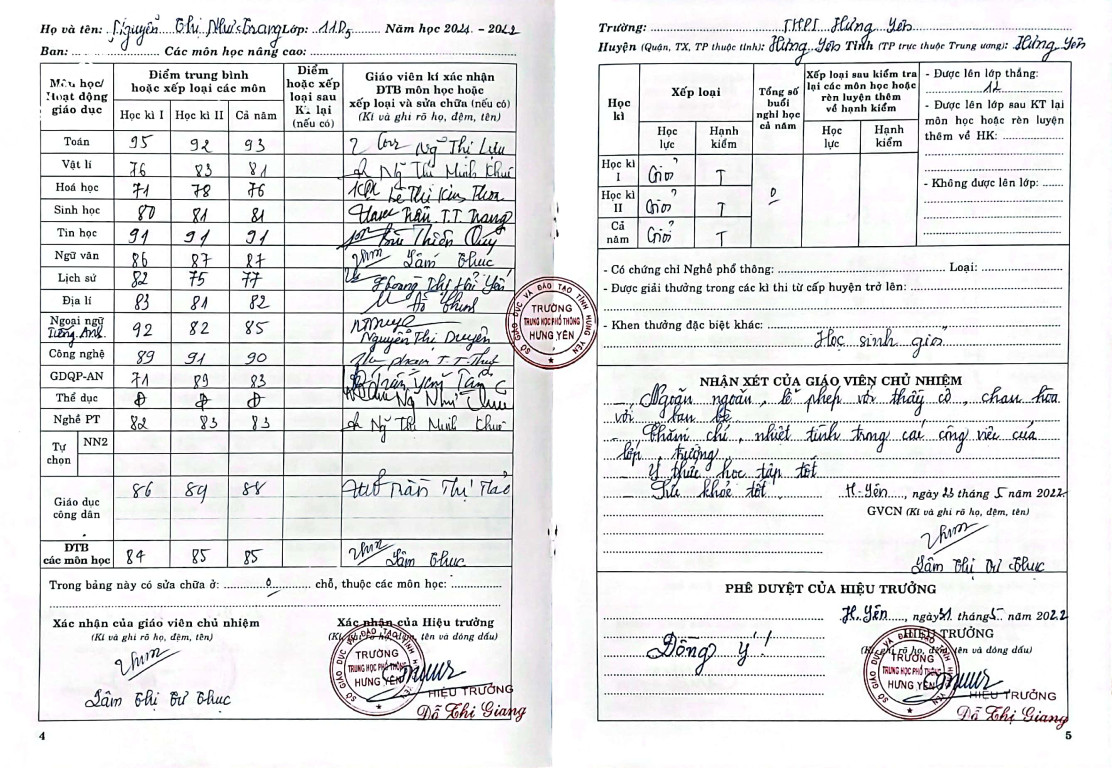 Họ và tên: Nguyễn Thị Như Trang Lớp: 11D5 Năm học 2021 - 2022
Ban: Các môn học nâng cao:
Môn học/ Hoạt động giáo dục
Điểm trung bình hoặc xếp loại các môn
Học kì I Học kì II Cả năm
Điểm hoặc xếp loại sau KT lại (nếu có)
Giáo viên kí xác nhận ĐTB môn học hoặc xếp loại và sửa chữa (nếu có)
(Kí và ghi rõ họ, đệm, tên)
Toán 95 92 93 Ng Thị Lưu
Vật lí 76 83 81 Ng Thị Minh Khuê
Hoá học 71 78 76 Lê Thị Kim Thoa
Sinh học 80 81 81 Trần T.T. Trang
Tin học 91 91 91 Bùi Thiện Quý
Ngữ văn 86 87 87 Lâm Thục
Lịch sử 82 75 77 Hoàng Thị Hải Yến
Địa lí 83 81 82
Ngoại ngữ Tiếng Anh 92 82 85 Nguyễn Thị Duyên
Công nghệ 89 91 90 Phạm T.T.
GDQP-AN 71 89 83 Trần
Thể dục Đ Đ Đ Ng Như
Nghề PT 82 83 83 Ng Thị Minh Khuê
Tự chọn NN2
Giáo dục công dân 86 89 88 Trần Thị
ĐTB các môn học 84 85 85 Lâm Thục
Trong bảng này có sửa chữa ở: 0 chỗ, thuộc các môn học:
Xác nhận của giáo viên chủ nhiệm
(Kí và ghi rõ họ, đệm, tên)
Lâm Thị Tư Thục
Xác nhận của Hiệu trưởng
(Kí và ghi rõ họ, đệm, tên và đóng dấu)
SỞ GIÁO DỤC VÀ ĐÀO TẠO TỈNH HƯNG YÊN
TRƯỜNG
TRUNG HỌC PHỔ THÔNG
HƯNG YÊN
HIỆU TRƯỞNG
Đỗ Thị Giang
4
SỞ GIÁO DỤC VÀ ĐÀO TẠO TỈNH HƯNG YÊN
TRƯỜNG
TRUNG HỌC PHỔ THÔNG
HƯNG YÊN
Trường: THPT Hưng Yên
Huyện (Quận, TX, TP thuộc tỉnh): Hưng Yên Tỉnh (TP trực thuộc Trung ương): Hưng Yên
Học kì
Xếp loại
Học lực Hạnh kiểm
Tổng số buổi nghỉ học cả năm
Xếp loại sau kiểm tra lại các môn học hoặc rèn luyện thêm về hạnh kiểm
Học lực Hạnh kiểm
Học kì I Giỏi T
Học kì II Giỏi T 0
Cả năm Giỏi T
- Được lên lớp thẳng:
12
- Được lên lớp sau KT lại
môn học hoặc rèn luyện
thêm về HK:
- Không được lên lớp:
- Có chứng chỉ Nghề phổ thông: Loại:
- Được giải thưởng trong các kì thi từ cấp huyện trở lên:
- Khen thưởng đặc biệt khác:
Học sinh giỏi
NHẬN XÉT CỦA GIÁO VIÊN CHỦ NHIỆM
- Ngoan ngoãn, lễ phép với thầy cô, chan hòa
với bạn bè
- Chăm chỉ, nhiệt tình trong các công việc của
lớp, trường
- Ý thức học tập tốt
- Sức khỏe tốt
H-Yên, ngày 23 tháng 5 năm 2022
GVCN (Kí và ghi rõ họ, đệm, tên)
Lâm Thị Tư Thục
PHÊ DUYỆT CỦA HIỆU TRƯỞNG
H.Yên, ngày 31 tháng 5 năm 2022
HIỆU TRƯỞNG
(Kí, ghi rõ họ, đệm, tên và đóng dấu)
Đồng ý!
SỞ GIÁO DỤC VÀ ĐÀO TẠO TỈNH HƯNG YÊN
TRƯỜNG
TRUNG HỌC PHỔ THÔNG
HƯNG YÊN
HIỆU TRƯỞNG
Đỗ Thị Giang
5